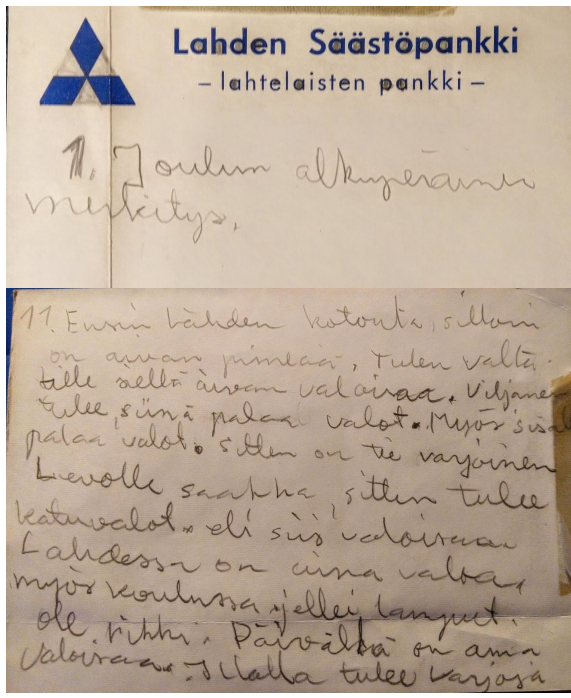 Lahden Säästöpankki
– lahtelaisten pankki –
1. Joulun alkuperäinen
merkitys.
11. Ensin lähden kotonta, silloin
on aivan pimeää, tulen valta-
tille siellä aivan valoisaa. Viljanen
tulee, siinä palaa valot. Myös sisäl
palaa valot. Sitten on tie varjoinen
Levolle saakka, sitten tulee
katuvalot. eli siis valoisaa
Lahdessa on aina valoa,
myös koulussa, jellei lamput.
ole rikki. Päivältä on aina
valoisaa. Illalla tulee varjosa